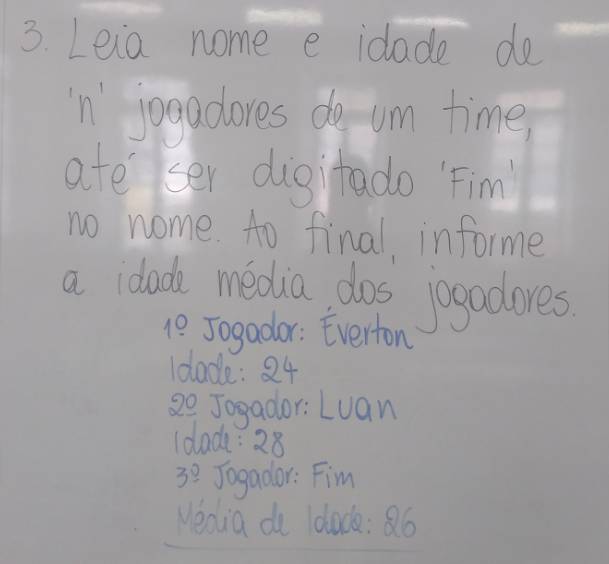 3. Leia nome e idade de
'n' jogadores de um time,
até ser digitado 'Fim'
no nome. Ao final, informe
a idade média dos jogadores.
1º Jogador: Éverton
Idade: 24
2º Jogador: Luan
Idade: 28
3º Jogador: Fim
Média de Idade: 26